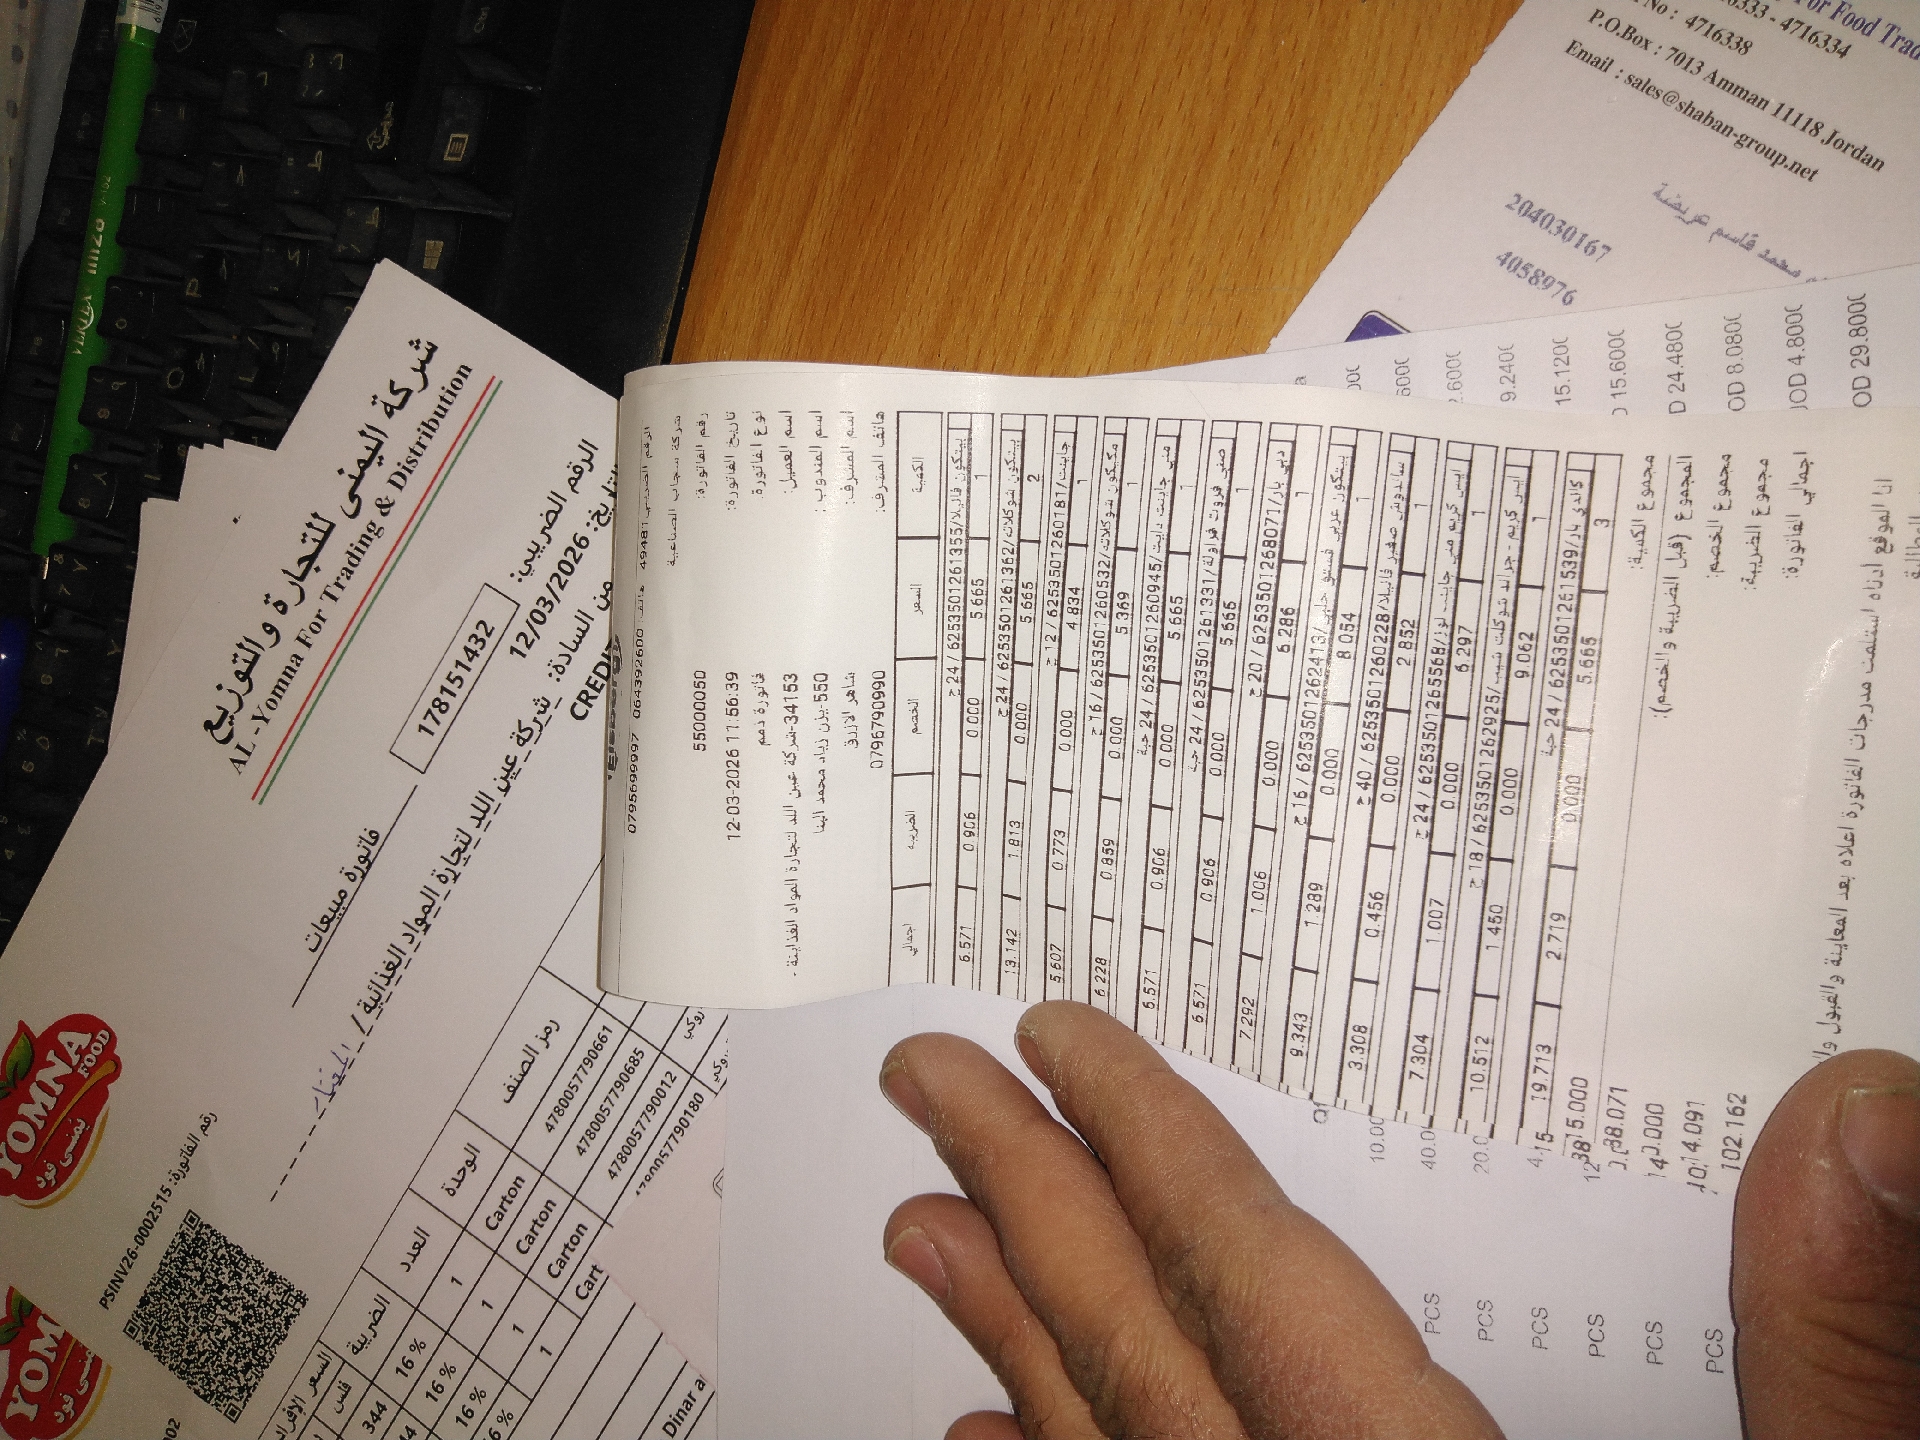 شركة اليمنى للتجارة والتوزيع
AL -Yomna For Trading & Distribution
الرقم الضريبي:
178151432
12/03/2026
فاتورة مبيعات
من السادة: شركة عين اللد لتجارة المواد الغذائية /
CREDIT
YOMNA
FOOD
يمنى فود
رقم الفاتورة: PSINV26-0002515
رمز الصنف
الوحدة
العدد
الضريبة
فلس
4780057790661
Carton
1
16 %
344
4780057790685
Carton
1
16 %
4780057790012
Carton
1
16 %
Cart
1
Dinar
0795699997 0643926000 هاتف: 49481 الرقم الضريبي
شركة سحاب الصناعية
رقم الفاتورة: 55000050
تاريخ الفاتورة: 12-03-2026 11:56:39
نوع الفاتورة: فاتورة ذمم
اسم العميل: 34153-شركة عين اللد لتجارة المواد الغذائية -
اسم المندوب: 550-يزن زياد محمد البنا
اسم المشرف: شاهر الازرق
هاتف المشرف: 0796790990
الكمية السعر الخصم الضريبة اجمالي
بيتكون فانيلا/6253501261355 / 24 ح
1 5.665 0.000 0.906 6.571
بيتكون شوكلات/6253501261362 / 24 ح
2 5.665 0.000 1.813 13.142
جاينت/6253501260181 / 12 ح
1 4.834 0.000 0.773 5.607
ميكيكون شوكلات/6253501260532 / 16 ح
1 5.369 0.000 0.859 6.228
مني جاينت دايت/6253501260945 / 24 حبة
1 5.665 0.000 0.906 6.571
صني فروت فراولة/6253501261331 / 24 حبة
1 5.665 0.000 0.906 6.571
دبي بار/6253501268071 / 20 ح
1 6.286 0.000 1.006 7.292
بيتكون عربي فستق حلبي/6253501262413 / 16 ح
1 8.054 0.000 1.289 9.343
ساندوش صغير فانيلا/6253501260228 / 40 ح
1 2.852 0.000 0.456 3.308
ايس كريم مني جاينت لوز/6253501265568 / 24 ح
1 6.297 0.000 1.007 7.304
ايس كريم - جراند شوكلت شيب/6253501262925 / 18 ح
1 9.062 0.000 1.450 10.512
كاندي بار/6253501261539 / 24 حبة
3 5.665 0.000 2.719 19.713
مجموع الكمية: 15.000
المجموع (قبل الضريبة والخصم): 88.071
مجموع الخصم: 0.000
مجموع الضريبة: 14.091
اجمالي الفاتورة: 102.162
انا الموقع ادناه استلمت مدرجات الفاتورة اعلاه بعد المعاينة والقبول
For Food Trad
4716334
No : 4716338
P.O.Box : 7013 Amman 11118 Jordan
Email : sales@shaban-group.net
محمد قاسم عريضة
204030167
4058976
9.240
15.120
15.600
24.480
OD 8.080
JOD 4.800
OD 29.800
PCS
PCS
PCS
PCS
PCS
PCS